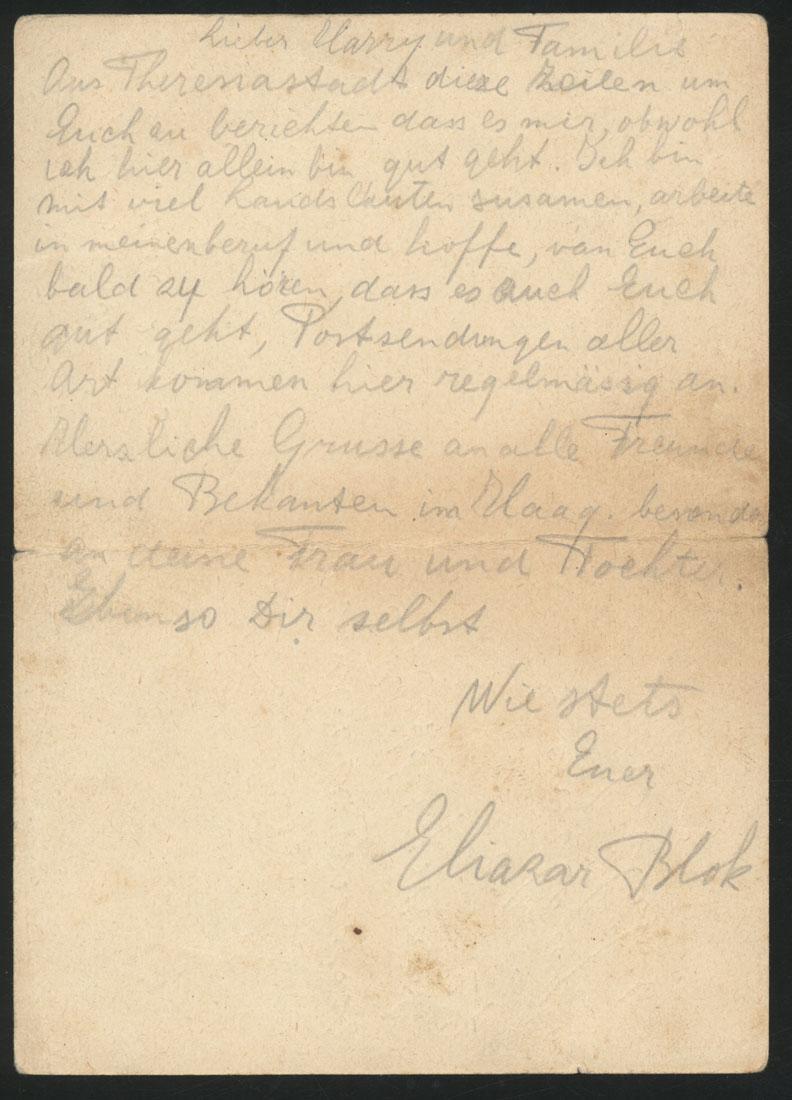 Lieber Harry und Familie
Aus Theresiastadt diese Zeilen um
Euch zu berichten dass es mir, obwohl
ich hier allein bin gut geht. Ich bin
mit viel Landsleuten zusamen, arbeite
in meinenberuf und hoffe, van Euch
bald zu hören, dass es auch Euch
gut geht, Postsendungen aller
Art kommen hier regelmässig an.
Herzliche Grusse an alle Freunde
und Bekanten im Haag. besonders
an deine Frau und Tochter.
Ebenso Dir selbst
Wie stets
Euer
Eliazar Blok